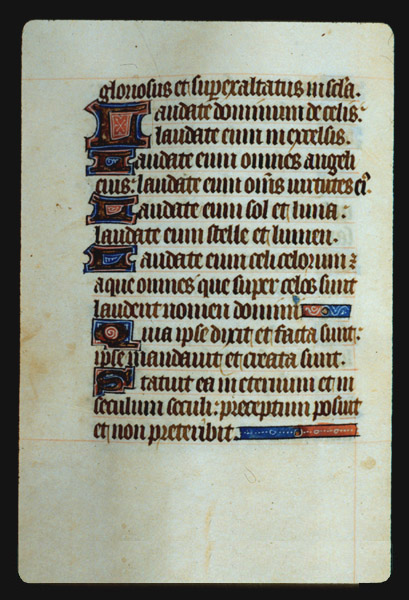 gloriosus et superexaltatus in scła.
Laudate dominum de celis:
laudate eum in excelsis.
Laudate eum omnes angeli
eius: laudate eum om̄s uirtutes ei9.
Laudate eum sol et luna:
laudate eum stelle et lumen.
Laudate eum celi celorum ⁊
aque omnes que super celos sunt
laudent nomen domini
Quia ipse dixit et facta sunt:
ipse mandauit et creata sunt.
Statuit ea in eternum et in
seculum seculi: preceptum posuit
et non preteribit.